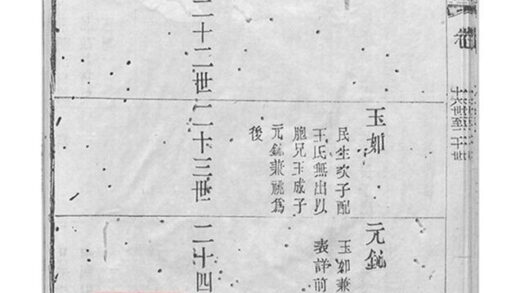 卷
二十二世
二十三世
玉如
民生次子配
王氏無出以
胞兄玉成子
元兼祧爲
後
二十四
元
玉如兼
表詳前